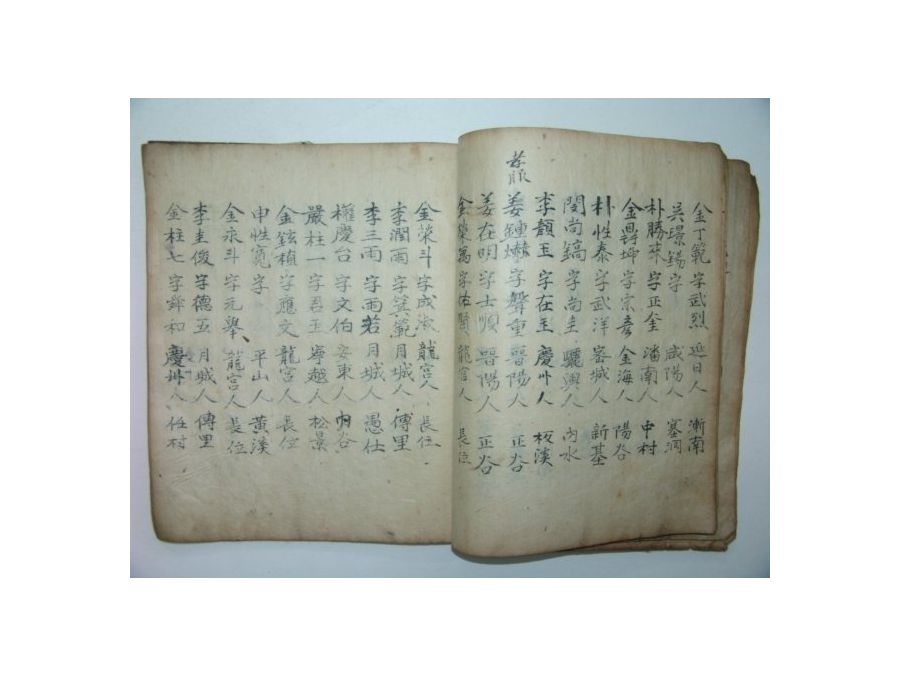 金丁範 字武烈 延日人 漸南
吳璟錫 字 咸陽人 塞洞
朴勝來 字正金 潘南人 中村
金鼎坤 字宗彦 金海人 陽谷
朴性泰 字武洋 密城人 新基
閔尚鎬 字尚圭 驪興人 內水
李顯玉 字在玉 慶州人 板溪
孝服
姜鍾 字聲重 晋陽人 正谷
姜在明 字士順 晋陽人 正谷
金榮萬 字佑賢 龍宮人 長位
金榮斗 字成淑 龍宮人 長位
李潤雨 字箕範 月城人 傳里
李三雨 字雨若 月城人 愚仕
權慶台 字文伯 安東人 谷
嚴柱一 字君玉 寧越人 松景
金鉉楨 字應文 龍宮人 長位
申性寬 字 平山人 黃溪
金永斗 字元擧 龍宮人 長位
李圭俊 字德五 月城人 傳里
金柱七 字舜和 慶州人 任村